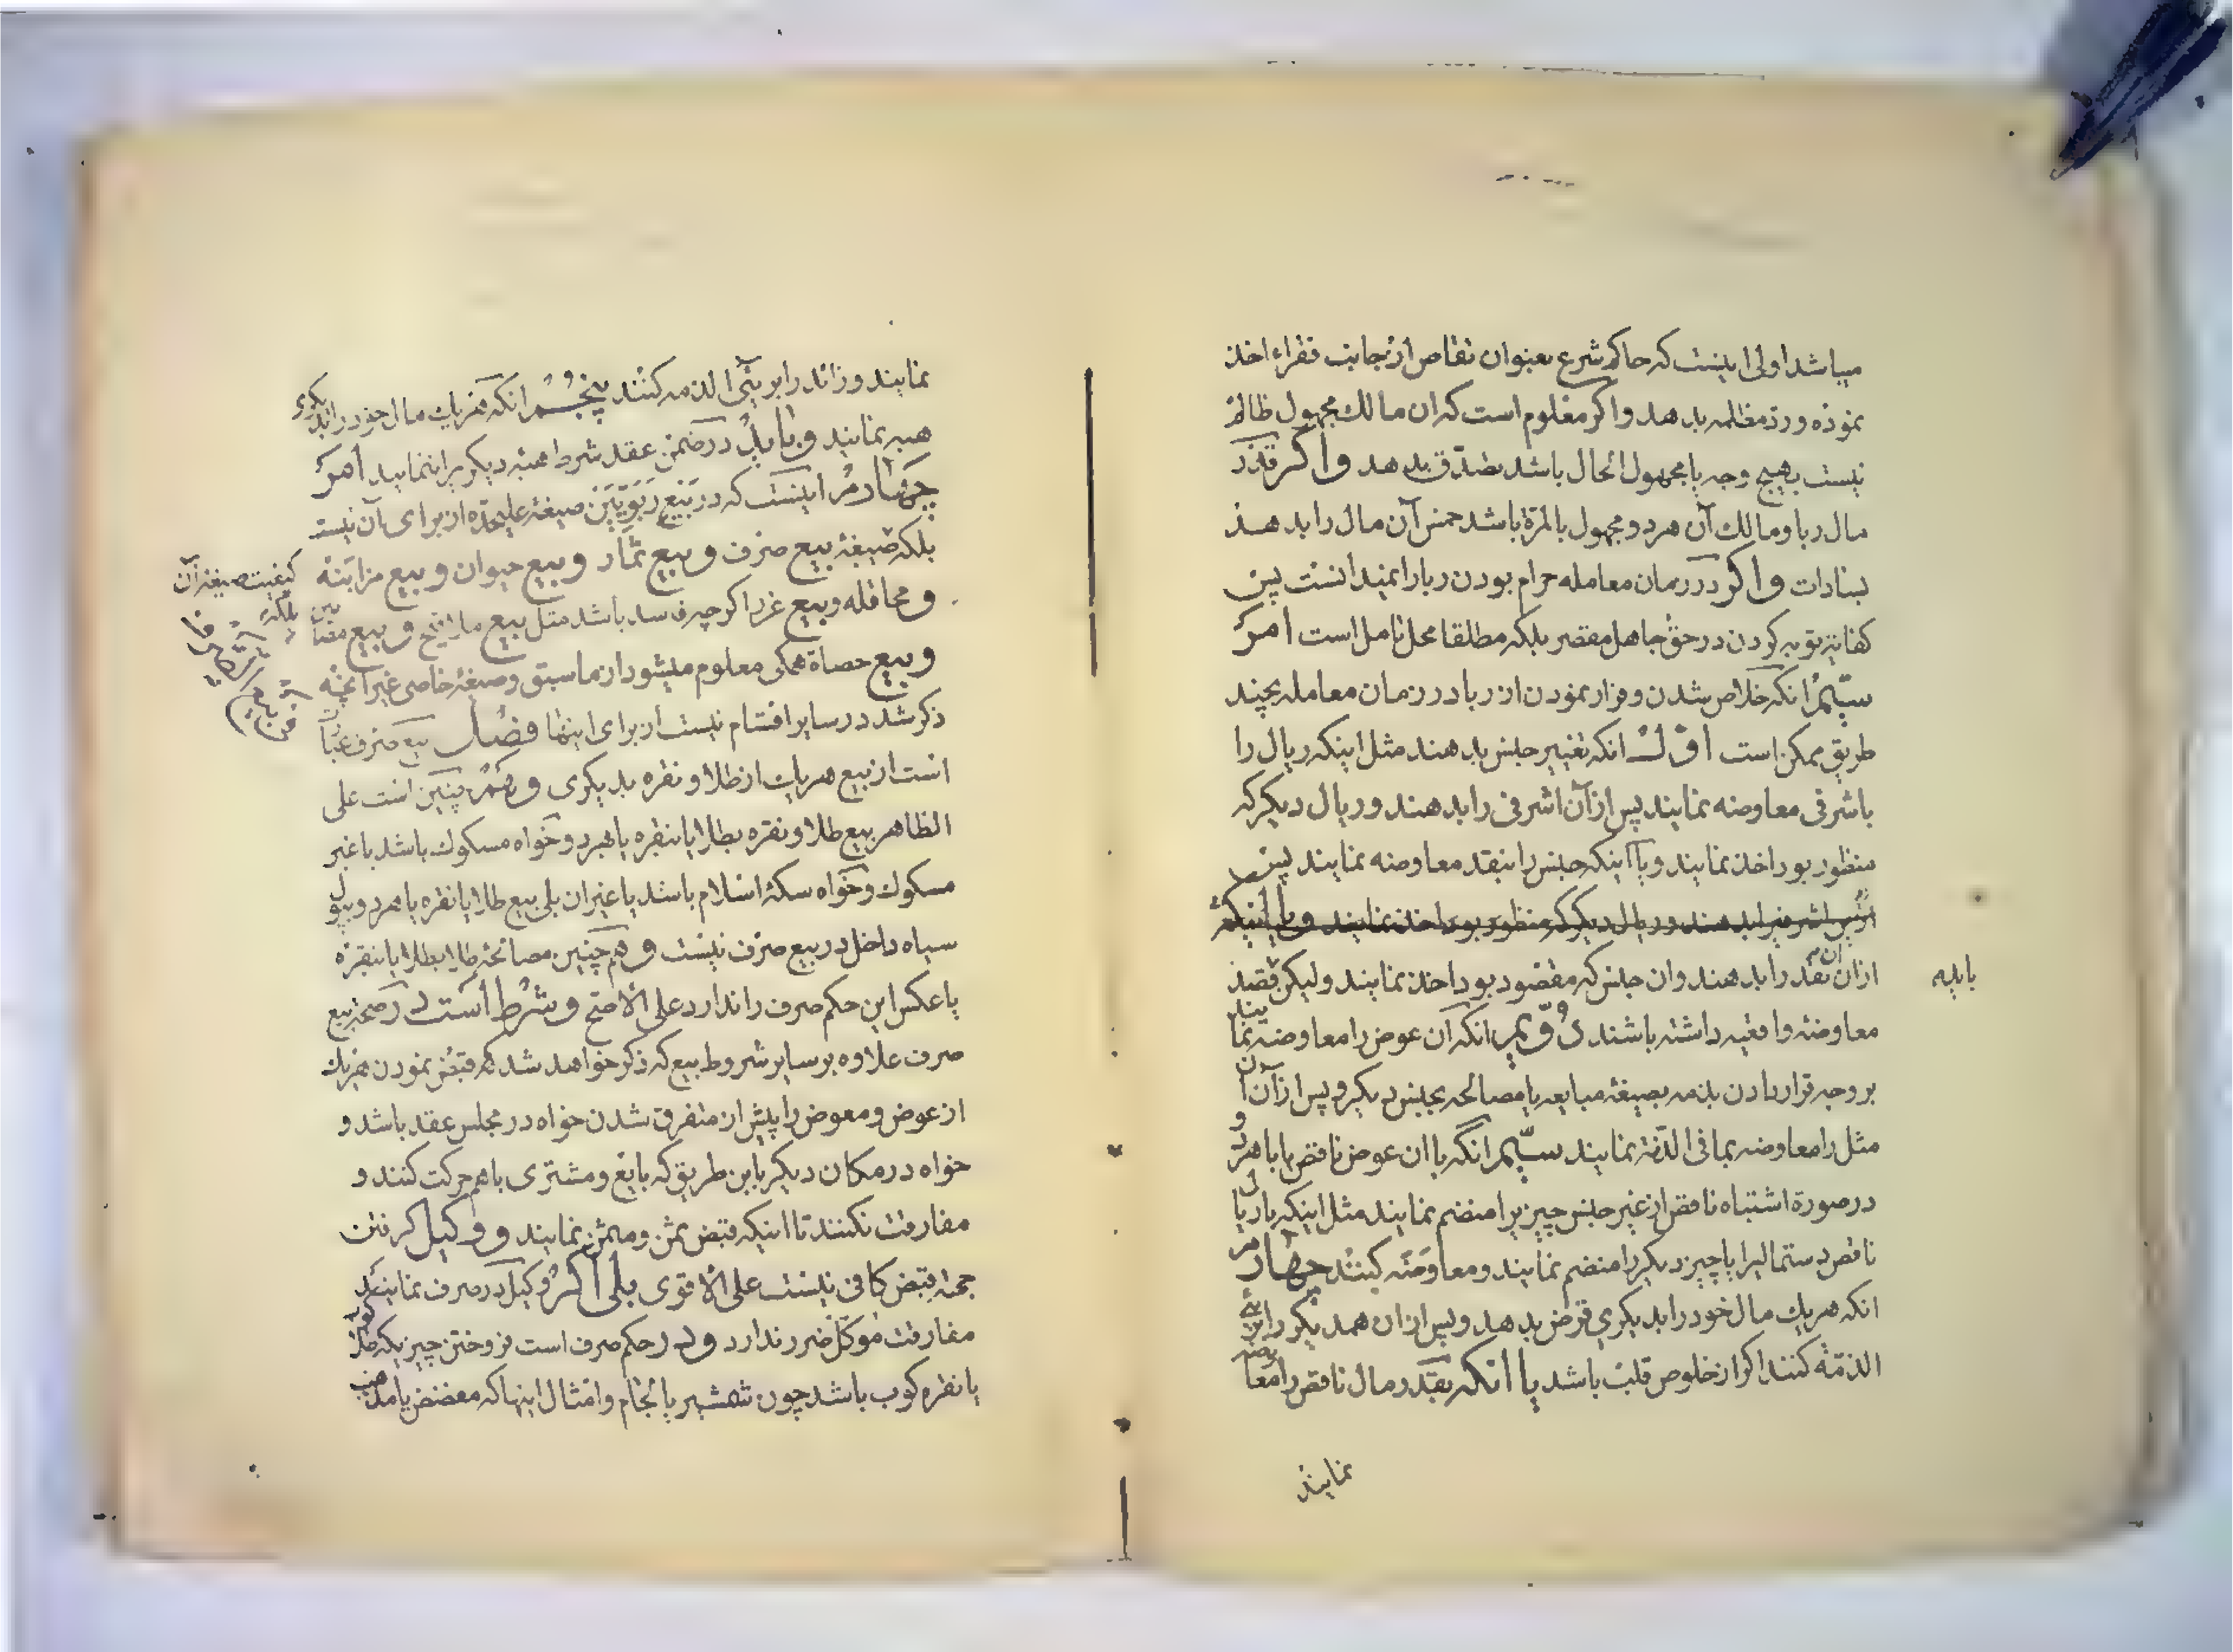 میباشد اولی اینست که حاکم شرع بعنوان تقاص از جانب فقراء اخذ
نموده و رد مظلمه بدهد و اگر معلوم است که ان مالك مجهول ظالم
نیست بهیچ وجه یا مجهول الحال باشد تصدّق بدهد و اگر قدر
مال ربا و مالك آن هر دو مجهول بالمرّة باشد خمس آن مال را بدهد
بسادات و اگر در زمان معامله حرام بودن ربا را نمیدانست پس
کفایة توبه کردن در حقّ جاهل مقصر بلکه مطلقا محل تامل است امر
سیّم انکه خلاص شدن و فرار نمودن از ربا در زمان معامله بچند
طریق ممکن است اوّل انکه تغییر جنس بدهند مثل اینکه ریال را
باشرفی معاوضه نمایند پس از آن اشرفی را بدهند و ریال دیگر که
منظور بود اخذ نمایند و یا اینکه جنس را بنقد معاوضه نمایند پس
اشرفیرا بدهند و ریال دیگر که منظور بود اخذ نمایند و یا اینکه
از ان نقد را بدهند و ان جنس که مقصود بود اخذ نمایند و لیکن قصد
باید به
معاوضه واقعیه داشته باشند دوّیم انکه آن عوض را معاوضه نمایند
بر وجه قرار دادن بذمه بصیغهٔ مبایعه یا مصالحه بجنس دیگر و پس از آن ان
مثل را معاوضه بما فی الذّمّة نمایند سیّم انکه با ان عوض ناقص یا با هر دو
در صورة اشتباه ناقص از غیر جنس چیزیرا منضم نمایند مثل اینکه با ریال
ناقص دستمالیرا یا چیز دیگر را منضم نمایند و معاوضه کنند چهارم
انکه هر یك مال خود را بدیگری قرض بدهد و پس از ان همدیگر را بریّ
الذمّة کنند اگر از خلوص قلب باشد یا انکه بقدر مال ناقص را معاوضه
نمایند
نمایند و زائد را بریّ الذمه کنند پنجم انکه هر یك مال خود را بدیگری
هبه نمایند و باید در ضمن عقد شرط هبهٔ دیگریرا ننمایند امر
چهارم اینست که در بیع ربویّین صیغهٔ علیحدّه از برای آن نیست
بلکه صیغهٔ بیع صرف و بیع ثمار و بیع حیوان و بیع مزابنه
کیفیت صیغهٔ آن
و محاقله و بیع غرر اگر چه فاسد باشد مثل بیع ملاقیح و بیع مضامین
و بیع حصاة همگی معلوم میشود از ما سبق و صیغهٔ خاصی غیر آنچه
ذکر شد در سایر اقسام نیست از برای اینها فصل بیع صرف عبارت
است از بیع هر یك از طلا و نقره بدیگری و هم چنین است علی
الظاهر بیع طلا و نقره بطلا یا بنقره یا بهر دو خواه مسکوك باشد یا غیر
مسکوك و خواه سکهٔ اسلام باشد یا غیر ان بلی بیع طلا یا نقره یا هر دو بپول
سیاه داخل در بیع صرف نیست و هم چنین مصالحهٔ طلا بطلا یا بنقره
یا عکس این حکم صرف را ندارد علی الاصحّ و شرط است در صحة بیع
صرف علاوه بر سایر شروط بیع که ذکر خواهد شد هم قبض نمودن هر یك
از عوض و معوض را پیش از متفرق شدن خواه در مجلس عقد باشد و
خواه در مکان دیگر باین طریق که بایع و مشتری با هم حرکت کنند و
مفارقت نکنند تا اینکه قبض ثمن و مثمن نمایند و وکیل گرفتن
بجهة قبض کافی نیست علی الاقوی بلی اگر وکیل در صرف نمایند
مفارقت موکّل ضرر ندارد و در حکم صرف است فروختن چیزیکه طلا کوب
یا نقره کوب باشد چون شمشیر یا لجام و امثال اینها که مفضض یا مذهب